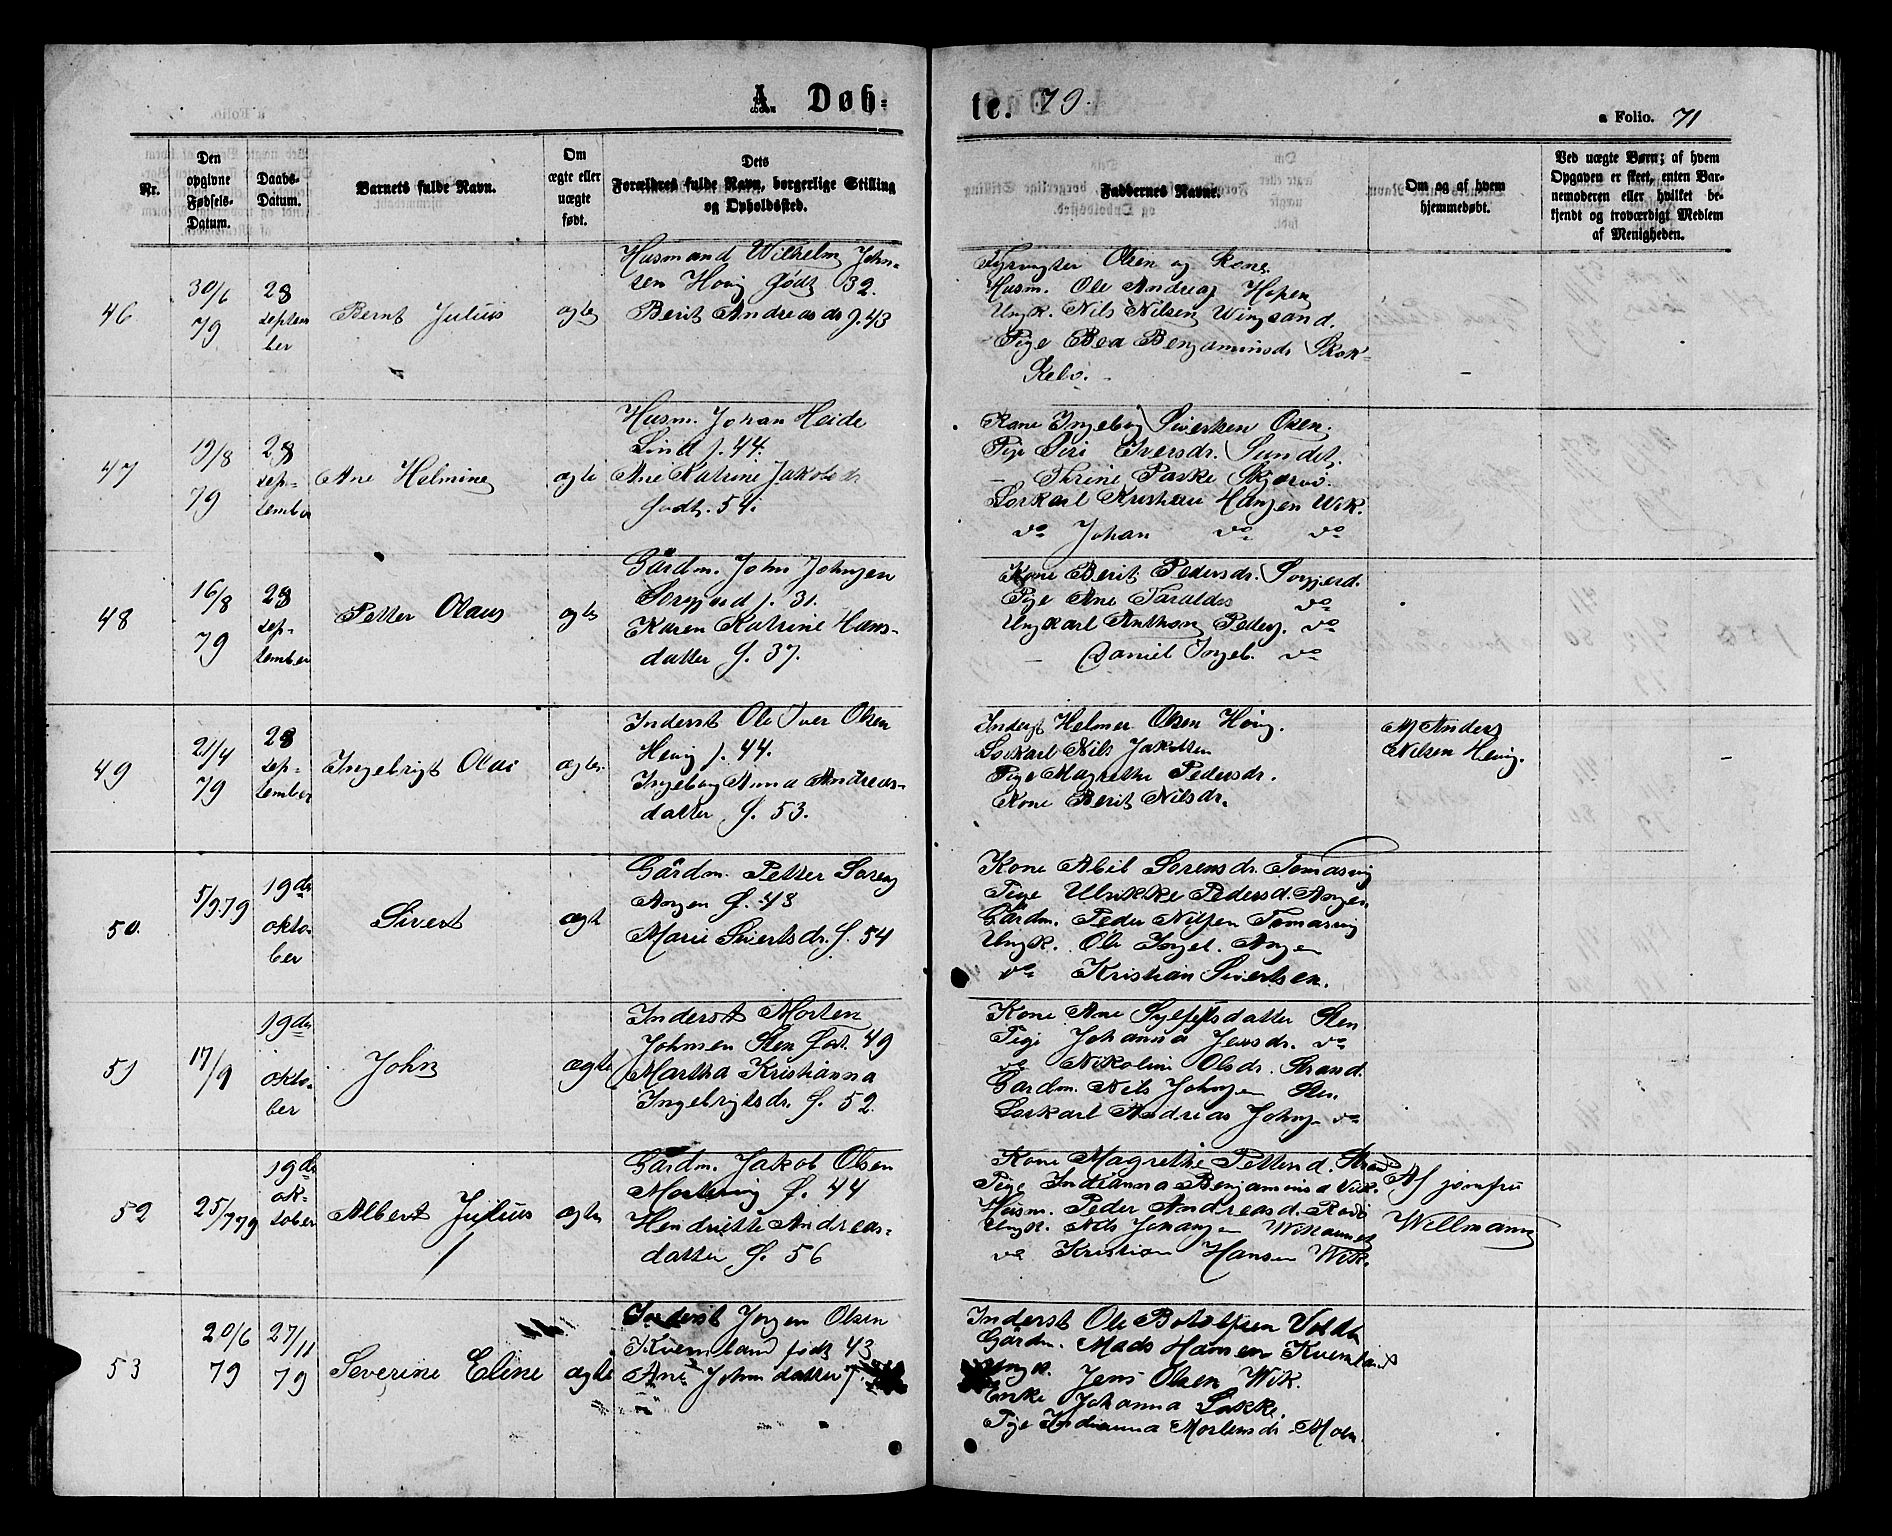 A. Døb-
te. 79.
a Folio. 71
Nr.
Den opgivne Fødsels-Datum.
Daabs-Datum.
Barnets fulde Navn.
Om ægte eller uægte født.
Dets Forældres fulde Navn, borgerlige Stilling og Opholdssted.
Faddernes Navne.
Om og af hvem hjemmedøbt.
Ved uægte Børn; af hvem Opgaven er skeet, enten Barnemoderen eller hvilket bekjendt og troværdigt Medlem af Menigheden.
46
30/6 79
28 septem ber
Bernt Julius
ægte
Husmand Wilhelm John-
sen Hovig født 32.
Berit Andreasdr f. 43
Fyrvogter Olsen og Kone
Husm. Ole Andreas Hopen
Ungk. Nils Nilsen Wingsand.
Pige Bea Benjaminsdr
47
19/8 79
28 sep- tember
Ane Helmine
ægte
Husm. Johan Heide
Lind f. 44.
Ane Katrine Jakobsdr
født. 54.
Kone Ingebog Sivertsen Osen.
Pige Siri Iversdr. Sundet.
- Thrine Paske
Kristian Hansen Wik.
do Johan do do
48
16/8 79
28 sep- tember
Petter Olaus
ægte
Gårdm. John Johnsen
f. 31.
Karen Katrine Hans-
datter f. 37.
Kone Berit Pedersdr.
Pige Ane do
Ungkarl Anthon Peders. do
- Daniel Ingeb. do
49
21/4 79
28 sep- tember
Ingebrigt Olai
ægte
Inderst Ole Iver Olsen
f. 44.
Ingeborg Anna Andreas-
datter f. 53.
Inderst Helmer Olsen
Nils Jakobsen
Pige Magrethe Pedersdr.
Kone Berit Nilsdr.
Af Anders
Nilsen
50.
5/9 79
19de okto- ber
Sivert
ægte
Gårdm. Petter Soren
Angen f. 48
Marie Sivertsdr. f. 54
Kone Abel Sorensdr. Tomasvig
Pige Ulrikke Pedersd. Angen
Gårdm. Peder Nilsen Tomasvig
Ungk. Ole Ingeb. Angen
do Kristian Sivertsen.
51
17/9
19de okto- ber
John
ægte
Inderst Morten
Johnsen Sten fød. 49
Martha Kristianna
Ingebrigtsdr. f. 52.
Kone Ane Sylfestsdatter Sten
Pige Johanna Jensdr. do
do Nikoline Olsdr. Strand.
Gårdm. Nils Johnsen Sten.
Andreas Johns. do
52
25/7 79
19de ok- tober
Albert Julius
ægte
Gårdm. Jakob Olsen
f. 44
Hendrikke Andreas-
datter f. 56
Kone Magrethe
Pige Indianna Benjaminsd Vik.
Husm. Peder Andreasd.
Ungk. Nils Johansen
do Kristian Hansen Wik.
Af jomfru
Willmann
53
20/6 79
27/11 79
Severine Eline
ægte
Inderst Jorgen Olsen
Kvernland født 43
Ane Johnsdatter f.
Inderst Ole
Gårdm. Mads Hansen Kvernland
Ungk. Jens Olsen Wik.
Enke Johanna
Pige Indianna Mortensdr.